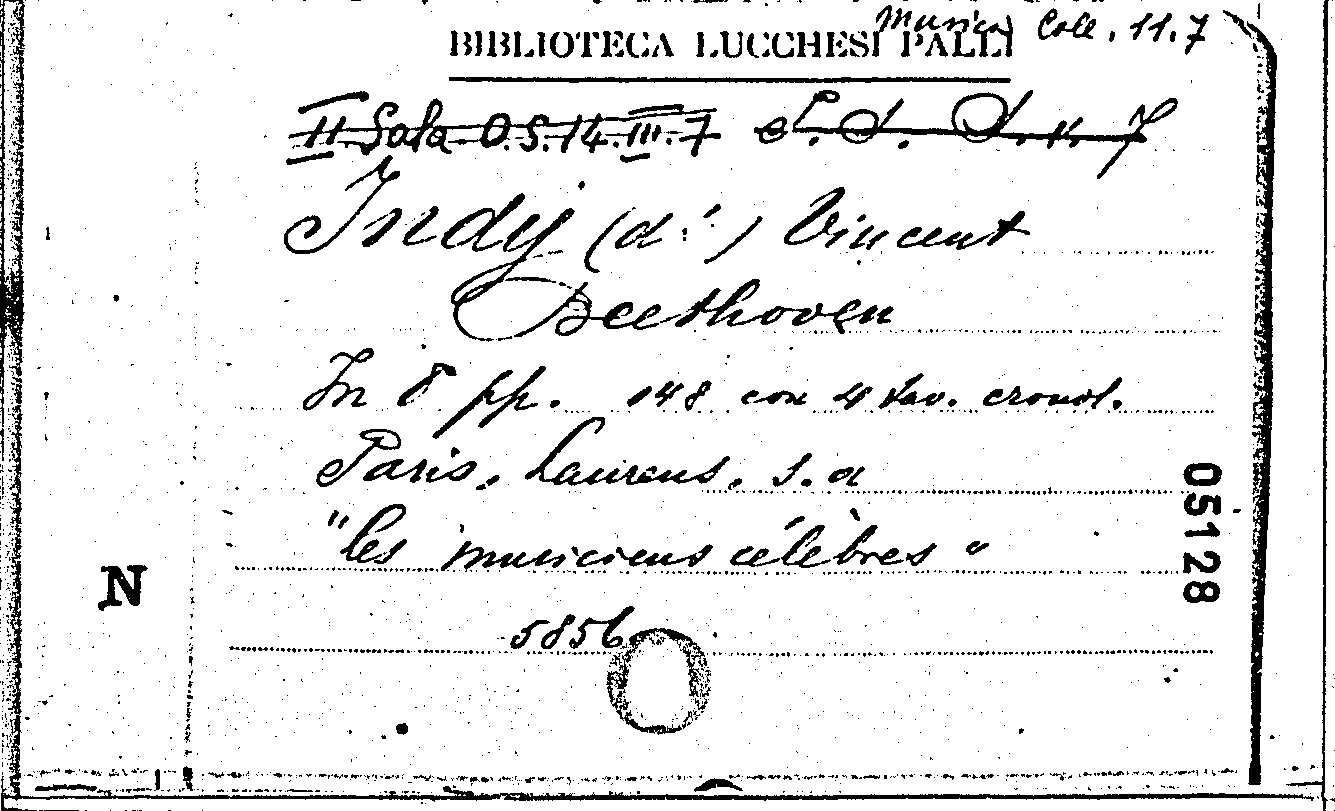 Musica Coll. 11.7
BIBLIOTECA LUCCHESI PALLI
II Sala O.S.14.III.7
Indy (d') Vincent
Beethoven
In 8 pp. 148 con 4 tav. cronol.
Paris, Laurens, s.a
"les musiciens célèbres"
05128
N
5856